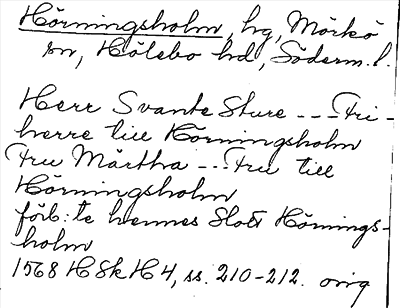 Hörningsholm, hg, Mörkö
sn, Hölebo hd, Söderm. l.
Herr Svante Sture --- Fri-
herre till Hörningsholm
Fru Märtha --- Fru till
Hörningsholm
förb: te hennes Slott Hörnings-
holm
1568 HSkH 4, ss. 210-212. orig